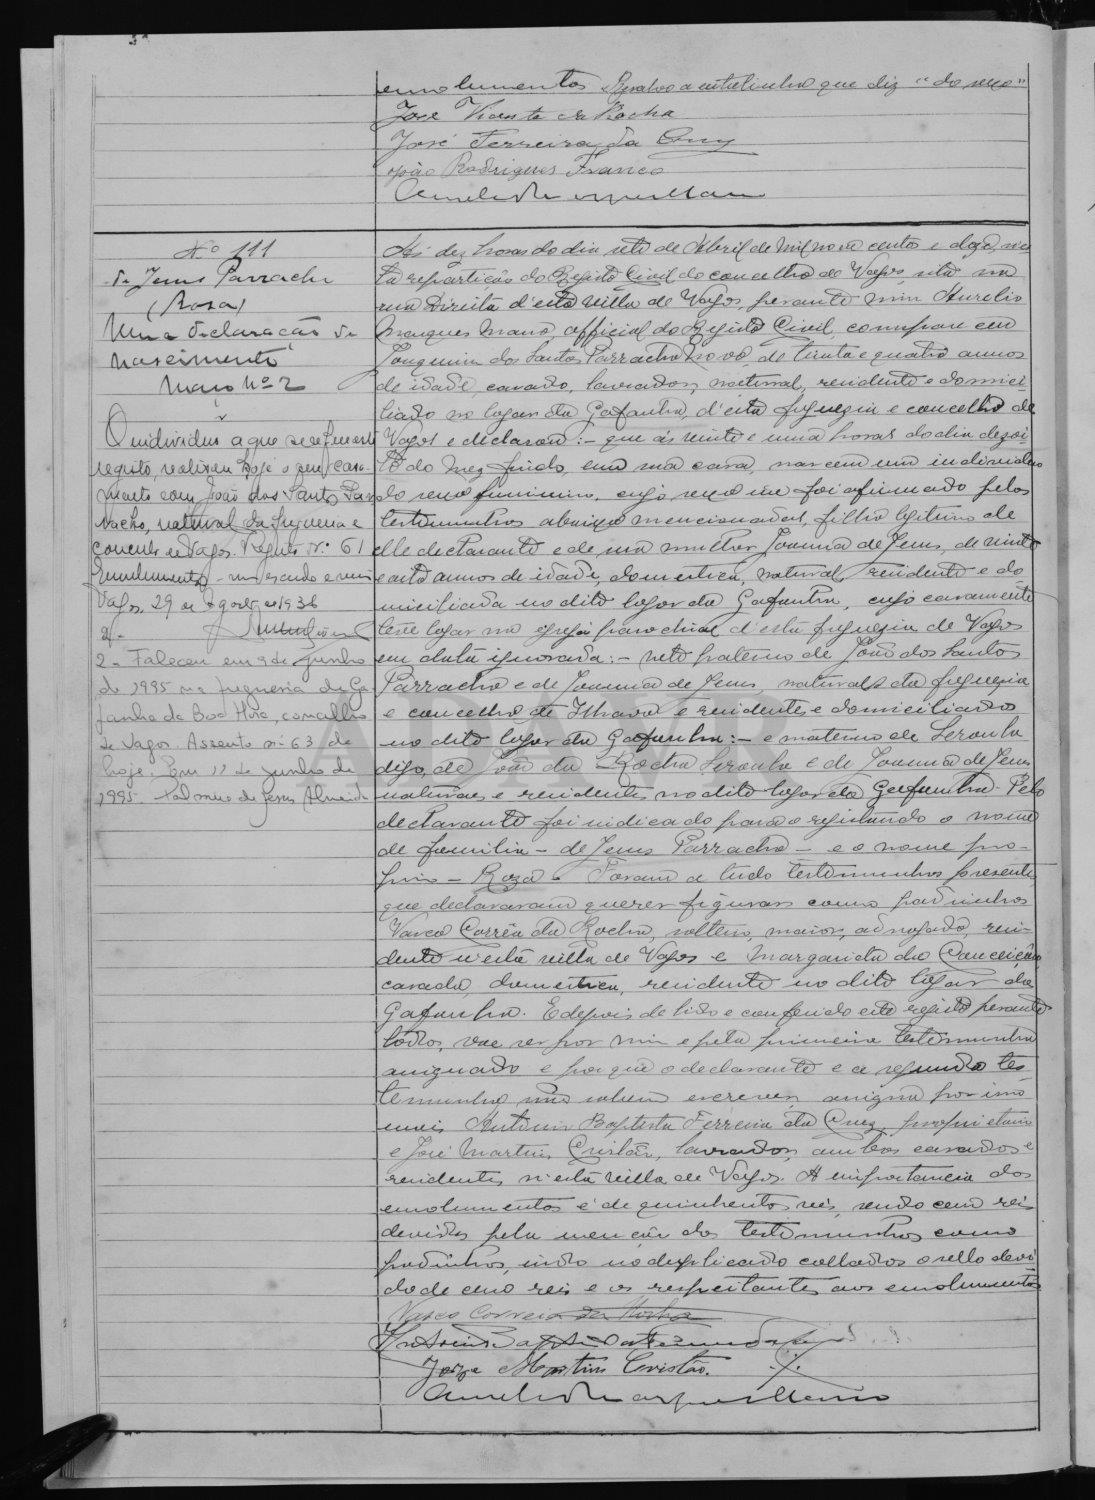 emolumentos. Resalvo a entrelinha que diz "do sexo"
José Vicente da Rocha
José Ferreira da Cruz
João Rodrigues Franco
Aurelio Marques Mano
Nº 111
de Jesus Parracho
(Rosa)
Uma declaração de
nascimento
Maço nº 2
O individuo a que se refere este
registo, realisou hoje o seu casa-
mento com João dos Santos Par
racho, natural da freguesia e
concelho de Vagos. Registo nº 61
Emolumentos - um escudo e meio
Vagos, 29 de Agosto de 1936
2 - Faleceu em 9 de Junho
de 1995 na freguesia da Ga
fanha da Boa Hora, concelho
de Vagos. Assento nº 63 de
hoje. Em 12 de Junho de
1995.
Ás dez horas do dia sete de Abril de mil nove centos e doze, nes-
ta repartição do Registo Civil do concelho de Vagos, sita na
rua Direita d'esta villa de Vagos, perante mim Aurelio
Marques Mano, official do Registo Civil, compareceu
Joaquim dos Santos Parracho novo, de trinta e quatro annos
de idade, casado, lavrador, natural, residente e domici-
liado no logar da Gafanha, d'esta freguezia e concelho de
Vagos e declarou: - que ás vinte e uma horas do dia dezoi-
to do mez findo, em sua casa, nasceu um individuo
do sexo feminino, cujo sexo me foi afirmado pelas
testemunhas abaixo mencionadas, filha legitima de
elle declarante e de sua mulher Joanna de Jesus, de vinte
e oito annos de idade, domestica, natural, residente e do
miciliada no dito logar da Gafanha, cujo casamento
teve logar na egreja parochial d'esta freguezia de Vagos
em data ignorada: - neta paterna de João dos Santos
Parracho e de Joanna de Jesus, naturaes da freguezia
e concelho de Ilhavo e residentes e domiciliados
no dito logar da Gafanha: - e materna de
digo, de João da Rocha e de Joanna de Jesus
naturaes e residentes no dito logar da Gafanha. Pelo
declarante foi indicado para o registando o nome
de familia - de Jesus Parracho - e o nome pro-
prio - Roza. Foram a tudo testemunhas presentes,
que declararam querer figurar como padrinhos
Vasco Corrêa da Rocha, solteiro, maior, advogado, resi-
dente n'esta villa de Vagos e Margarida da Conceição,
casada, domestica, residente no dito logar da
Gafanha. E depois de lido e conferido este registo perante
todos, vae ser por mim e pela primeira testemunha
assignado e porque o declarante e a segunda tes-
temunha não sabem escrever, assigna por isso
mais Antonio Baptista Ferreira da Cruz, proprietario
e José Martins Cristão, lavrador, ambos casados e
residentes n'esta villa de Vagos. A importancia dos
emolumentos é de quinhentos réis, sendo cem réis
devidos pela menção das testemunhas como
padrinhos, indo no duplicado collados o sello devi-
do de cem reis e os respeitantes aos emolumentos
Vasco Correia da Rocha
Antonio Baptista Ferreira da Cruz
Jose Martins Cristão.
Aurelio Marques Mano